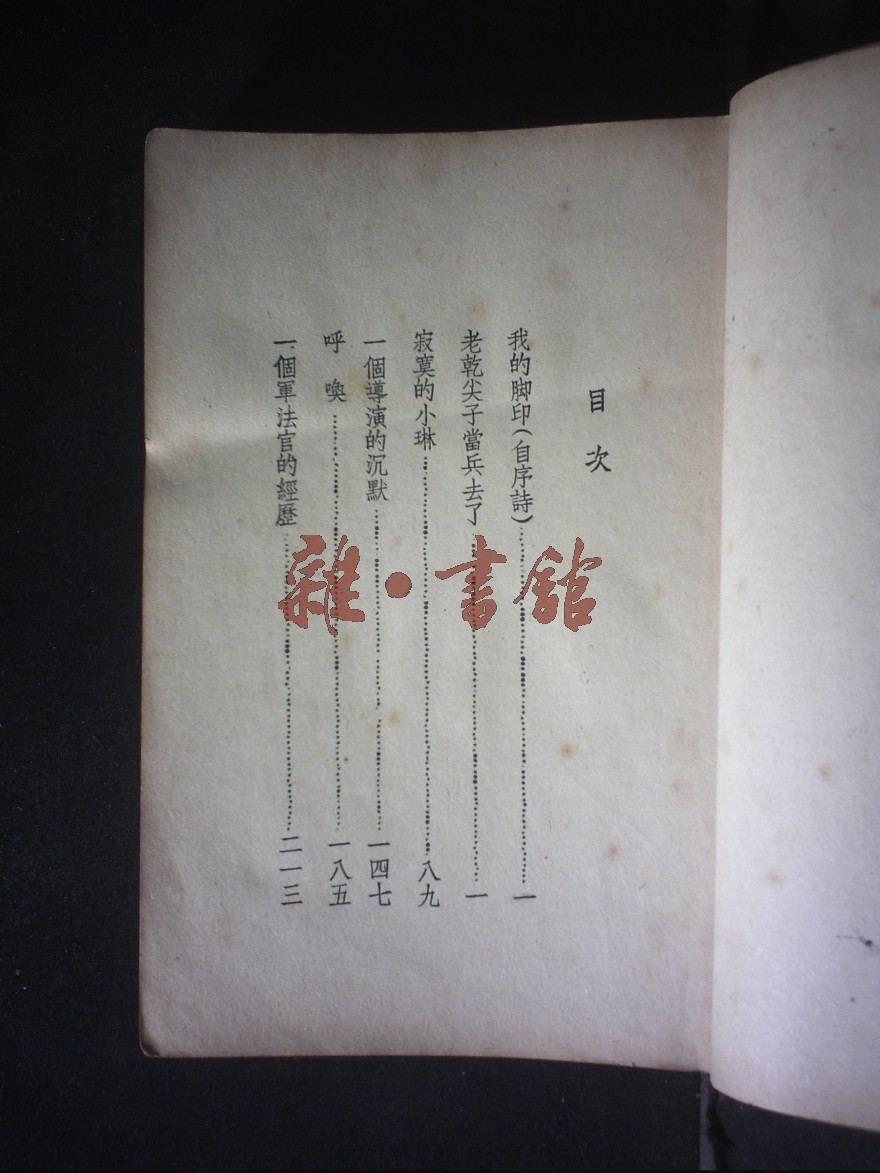 目次
我的脚印(自序詩)……一
老乾尖子當兵去了……一
寂寞的小琳……八九
一個導演的沉默……一四七
呼喚……一八五
一個軍法官的經歷……二一三
雜·書館